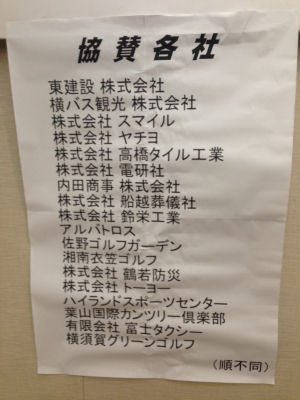 協賛各社
東建設 株式会社
横バス観光 株式会社
株式会社 スマイル
株式会社 ヤチヨ
株式会社 高橋タイル工業
株式会社 電研社
内田商事 株式会社
株式会社 船越葬儀社
株式会社 鈴栄工業
アルバトロス
佐野ゴルフガーデン
湘南衣笠ゴルフ
株式会社 鶴若防災
株式会社 トーヨー
ハイランドスポーツセンター
葉山国際カンツリー倶楽部
有限会社 富士タクシー
横須賀グリーンゴルフ
（順不同）